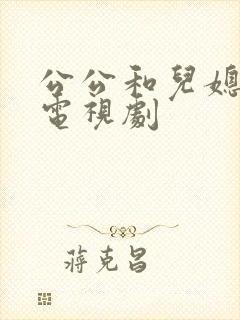 公公和兒媳
電視劇
蔣克昌